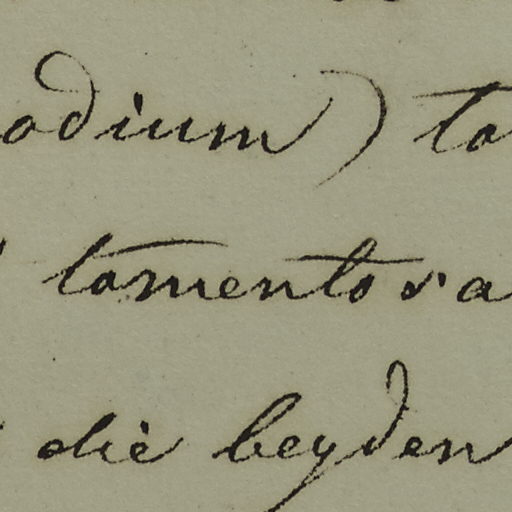 odium) to
tomentosa
die beyden